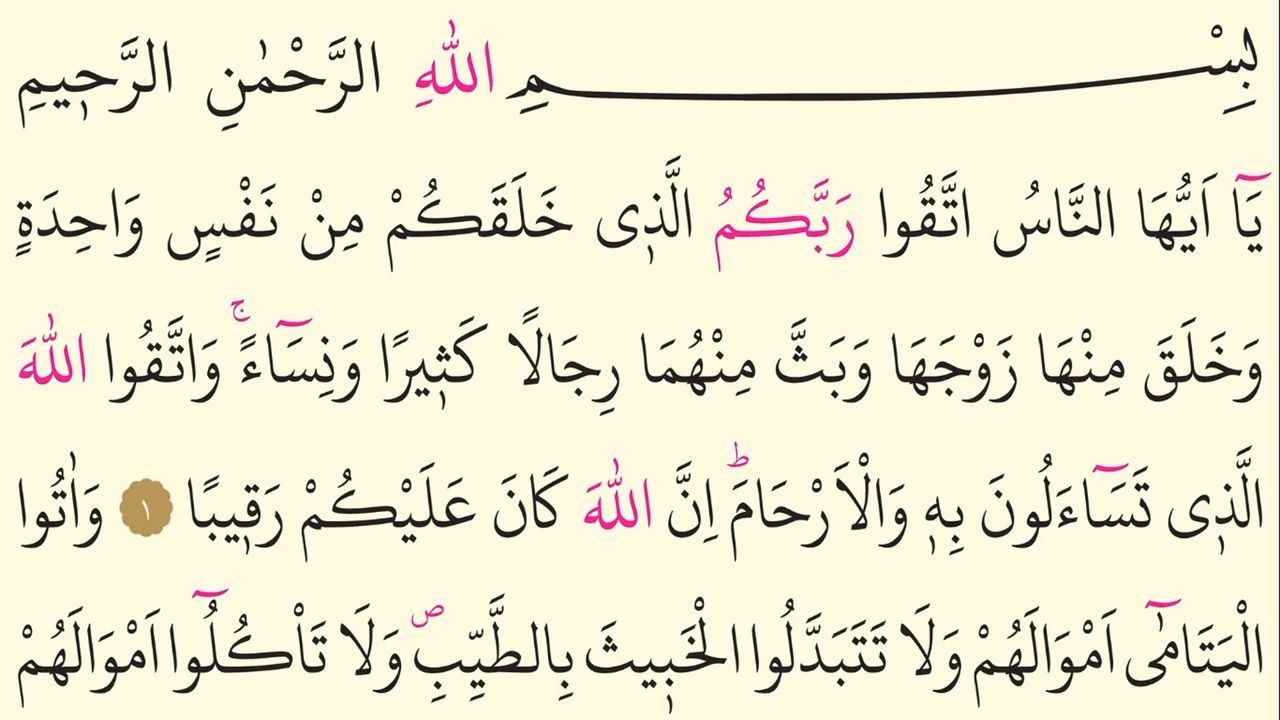 بِسْمِ اللّٰهِ الرَّحْمٰنِ الرَّح۪يمِ
يَٓا اَيُّهَا النَّاسُ اتَّقُوا رَبَّكُمُ الَّذ۪ى خَلَقَكُمْ مِنْ نَفْسٍ وَاحِدَةٍ
وَخَلَقَ مِنْهَا زَوْجَهَا وَبَثَّ مِنْهُمَا رِجَالًا كَث۪يرًا وَنِسَٓاءًۚ وَاتَّقُوا اللّٰهَ
الَّذ۪ى تَسَٓاءَلُونَ بِه۪ وَالْاَرْحَامَۜ اِنَّ اللّٰهَ كَانَ عَلَيْكُمْ رَق۪يبًا ١ وَاٰتُوا
الْيَتَامٰٓى اَمْوَالَهُمْ وَلَا تَتَبَدَّلُوا الْخَب۪يثَ بِالطَّيِّبِۖ وَلَا تَاْكُلُٓوا اَمْوَالَهُمْ